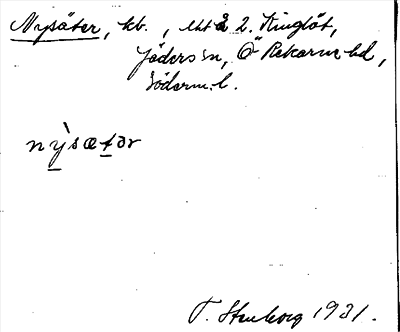 Nysäter, kb., mt å 2. Kinglöt,
Jäders sn, Ö Rekarne hd,
Söderm. l.
nỳsætər
T. Stenborg 1931.